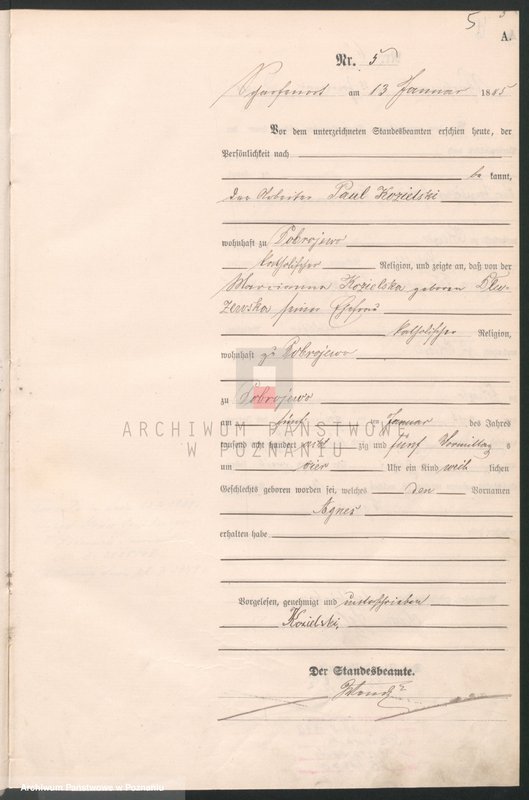 5
A.
Nr. 5
Scharfenort am 13 Januar 1885
Vor dem unterzeichneten Standesbeamten erschien heute, der
Persönlichkeit nach
be kannt,
der Arbeiter Paul Kozielski
wohnhaft zu Dobrojewo
katholischer Religion, und zeigte an, daß von der
Marcianna Kozielska geboren Dlu-
zewska seiner Ehefrau
katholischer Religion,
wohnhaft zu Dobrojewo
zu Dobrojewo
am fünf ten Januar des Jahres
tausend acht hundert acht zig und fünf Vormittag s
um vier Uhr ein Kind weib lichen
Geschlechts geboren worden sei, welches den Vornamen
Agnes
erhalten habe
Vorgelesen, genehmigt und unterschrieben
Kozielski,
Der Standesbeamte.
ARCHIWUM PAŃSTWOWE
W POZNANIU
Archiwum Państwowe w Poznaniu